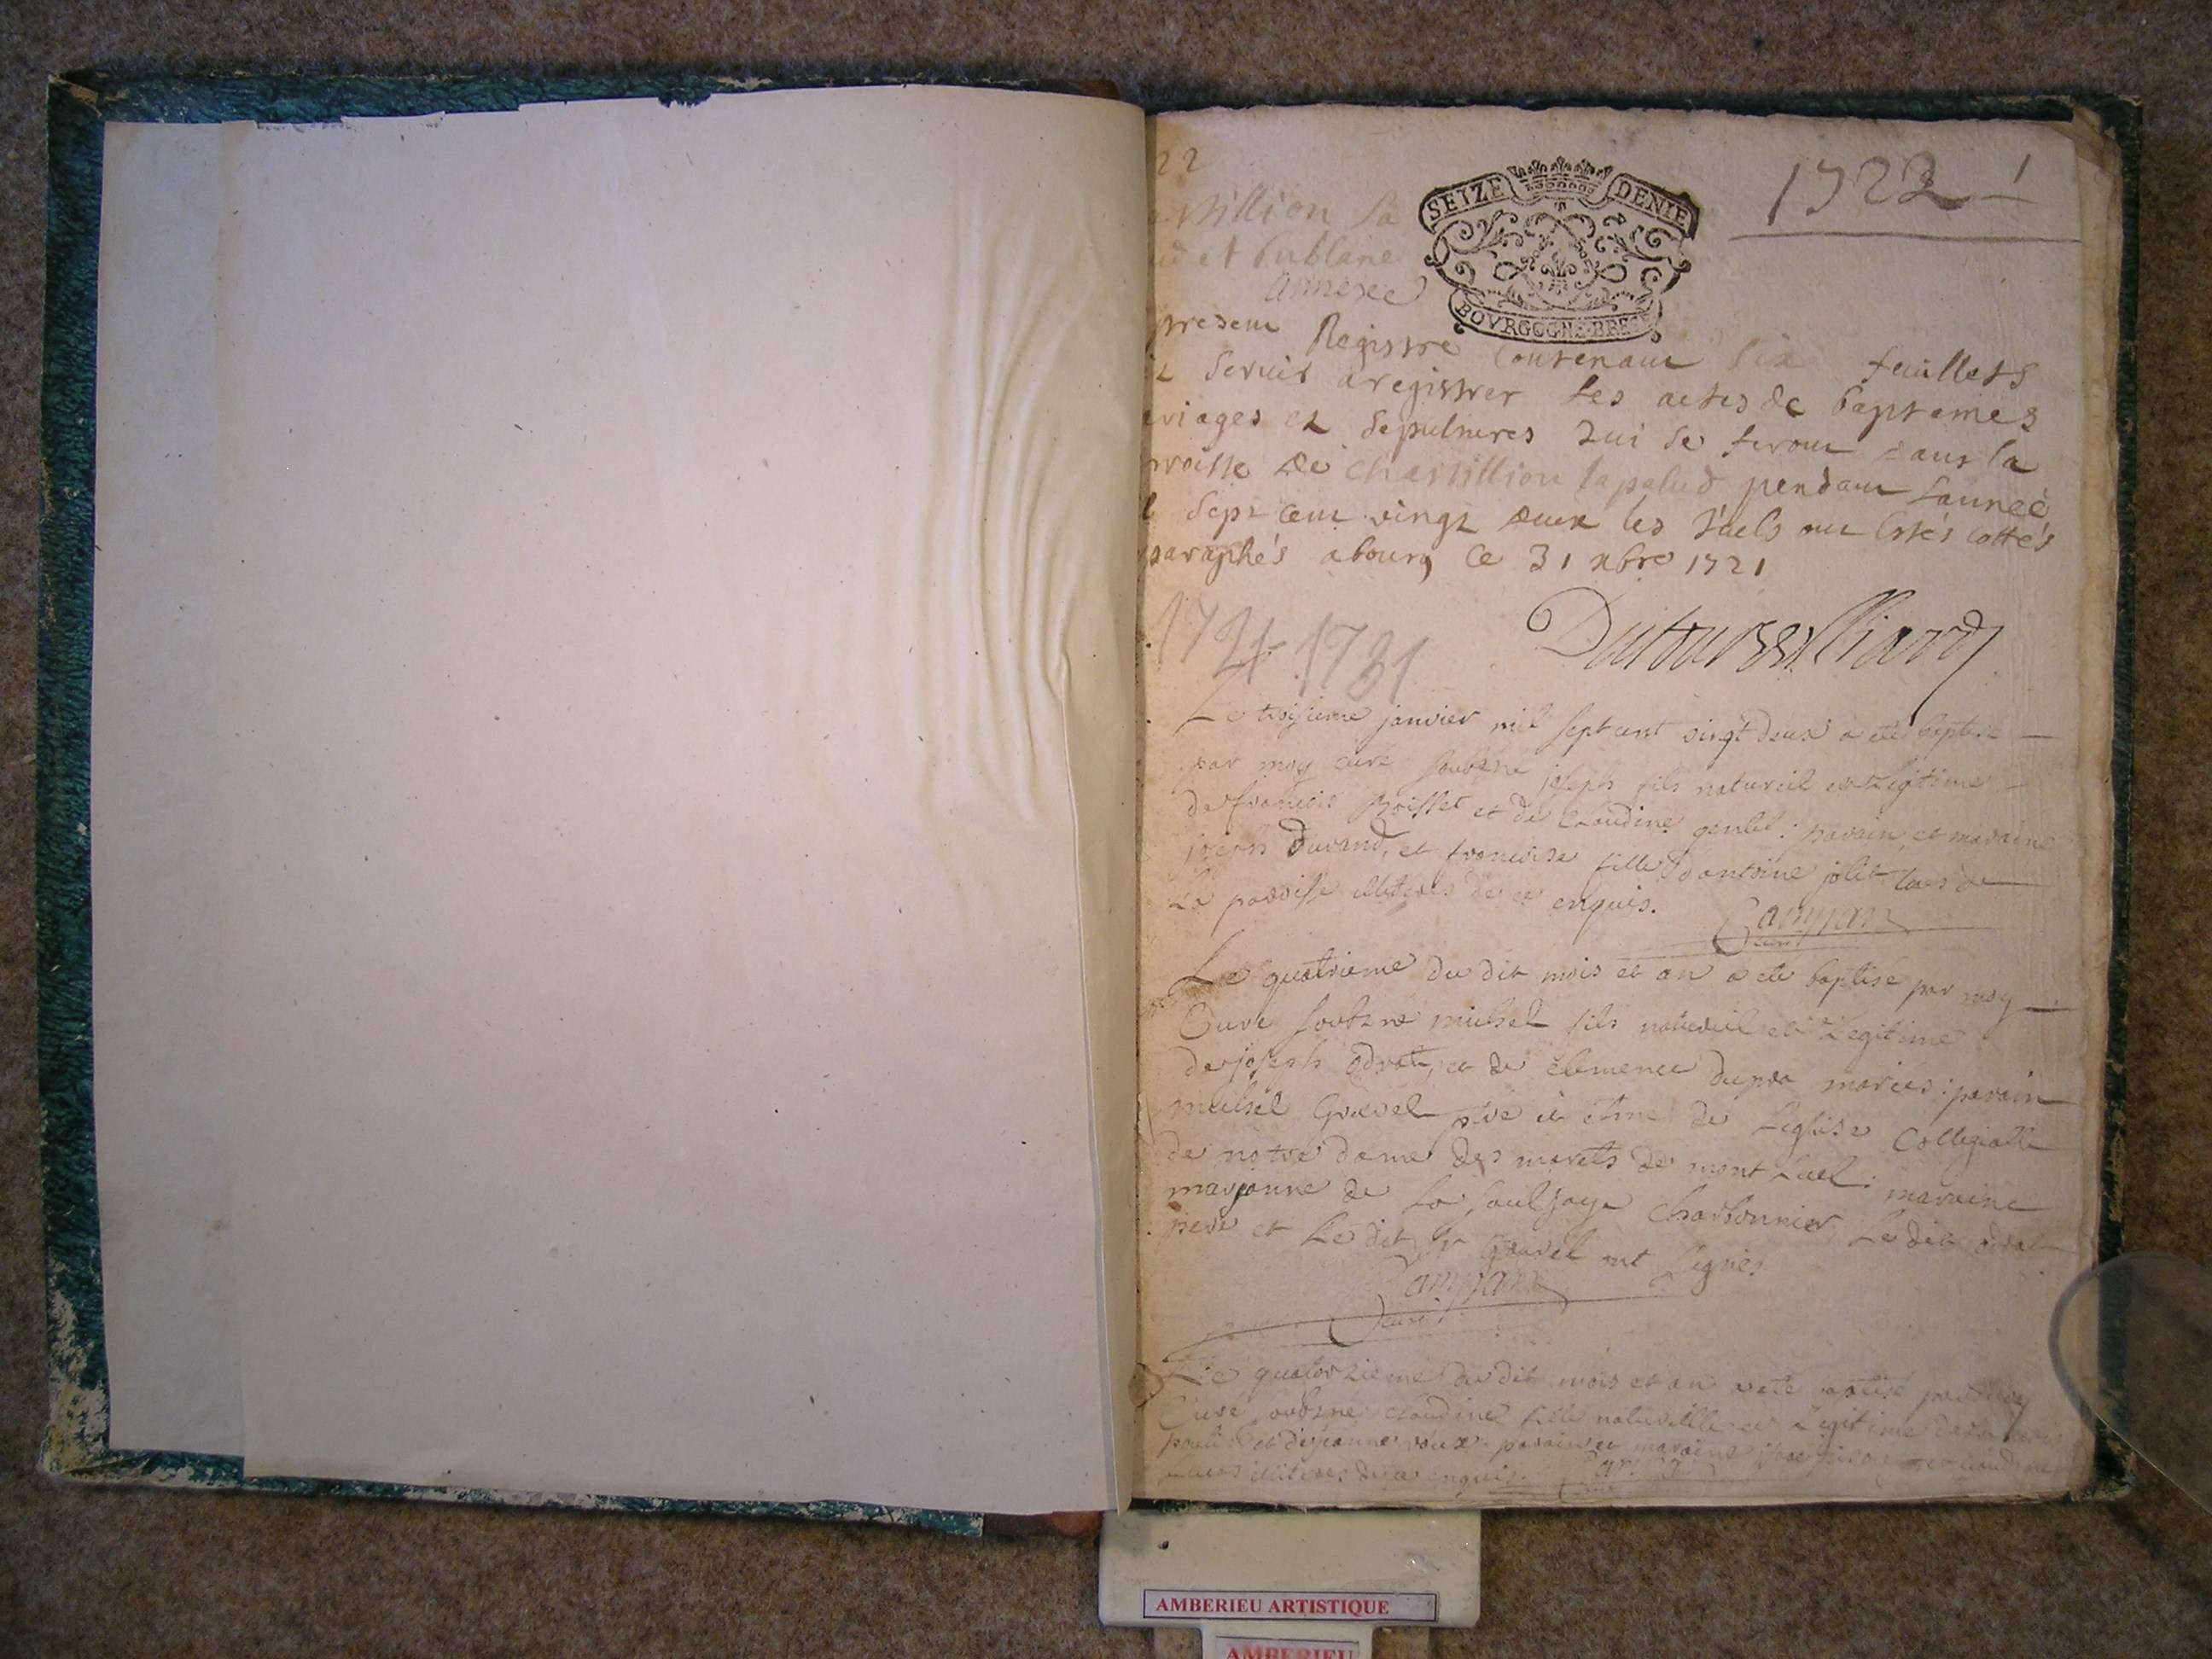 22
1722 1
SEIZE DENIE
BOVRGOGNE BRES
tillion la
et bublane
annexe
present Registre contenant six feuillets
servir a registrer les actes de baptemes
riages et sepultures qui se feront dans la
roisse de chastillion lapalud pendant l'année
l sept cent vingt deux les
paraphés a bourg ce 31 xbre 1721
1721-1731
Le troisieme janvier mil sept cent vingt deux a eté baptise
par moy curé soubsne joseph fils naturel et Legitime
de francois et de Claudine gentil: parain et maraine
joseph Durand, et francoise fille d'antoine jolit tous de
La paroisse illiteres de ce enquis.
Campan
Curé
Le quatrieme du dit mois et an a eté baptisé par moy
Curé soubsne michel fils naturel et Legitime
de joseph et de clemence dupra mariés: parain
michel Gravel ptre et de L'eglise Collegialle
de notre dame des marets de mont Luel: maraine
marianne de La saulsaye charbonnier Le dit
pere et Le dit Sr Gravel ont signés
Campan
Curé
Le quatorzieme du dit mois et an a eté par moy
Curé soubsne claudine fille naturelle et Legitime
et de jeanne parain et maraine
illiteres de ce enquis.
AMBERIEU ARTISTIQUE
AMBERIEU